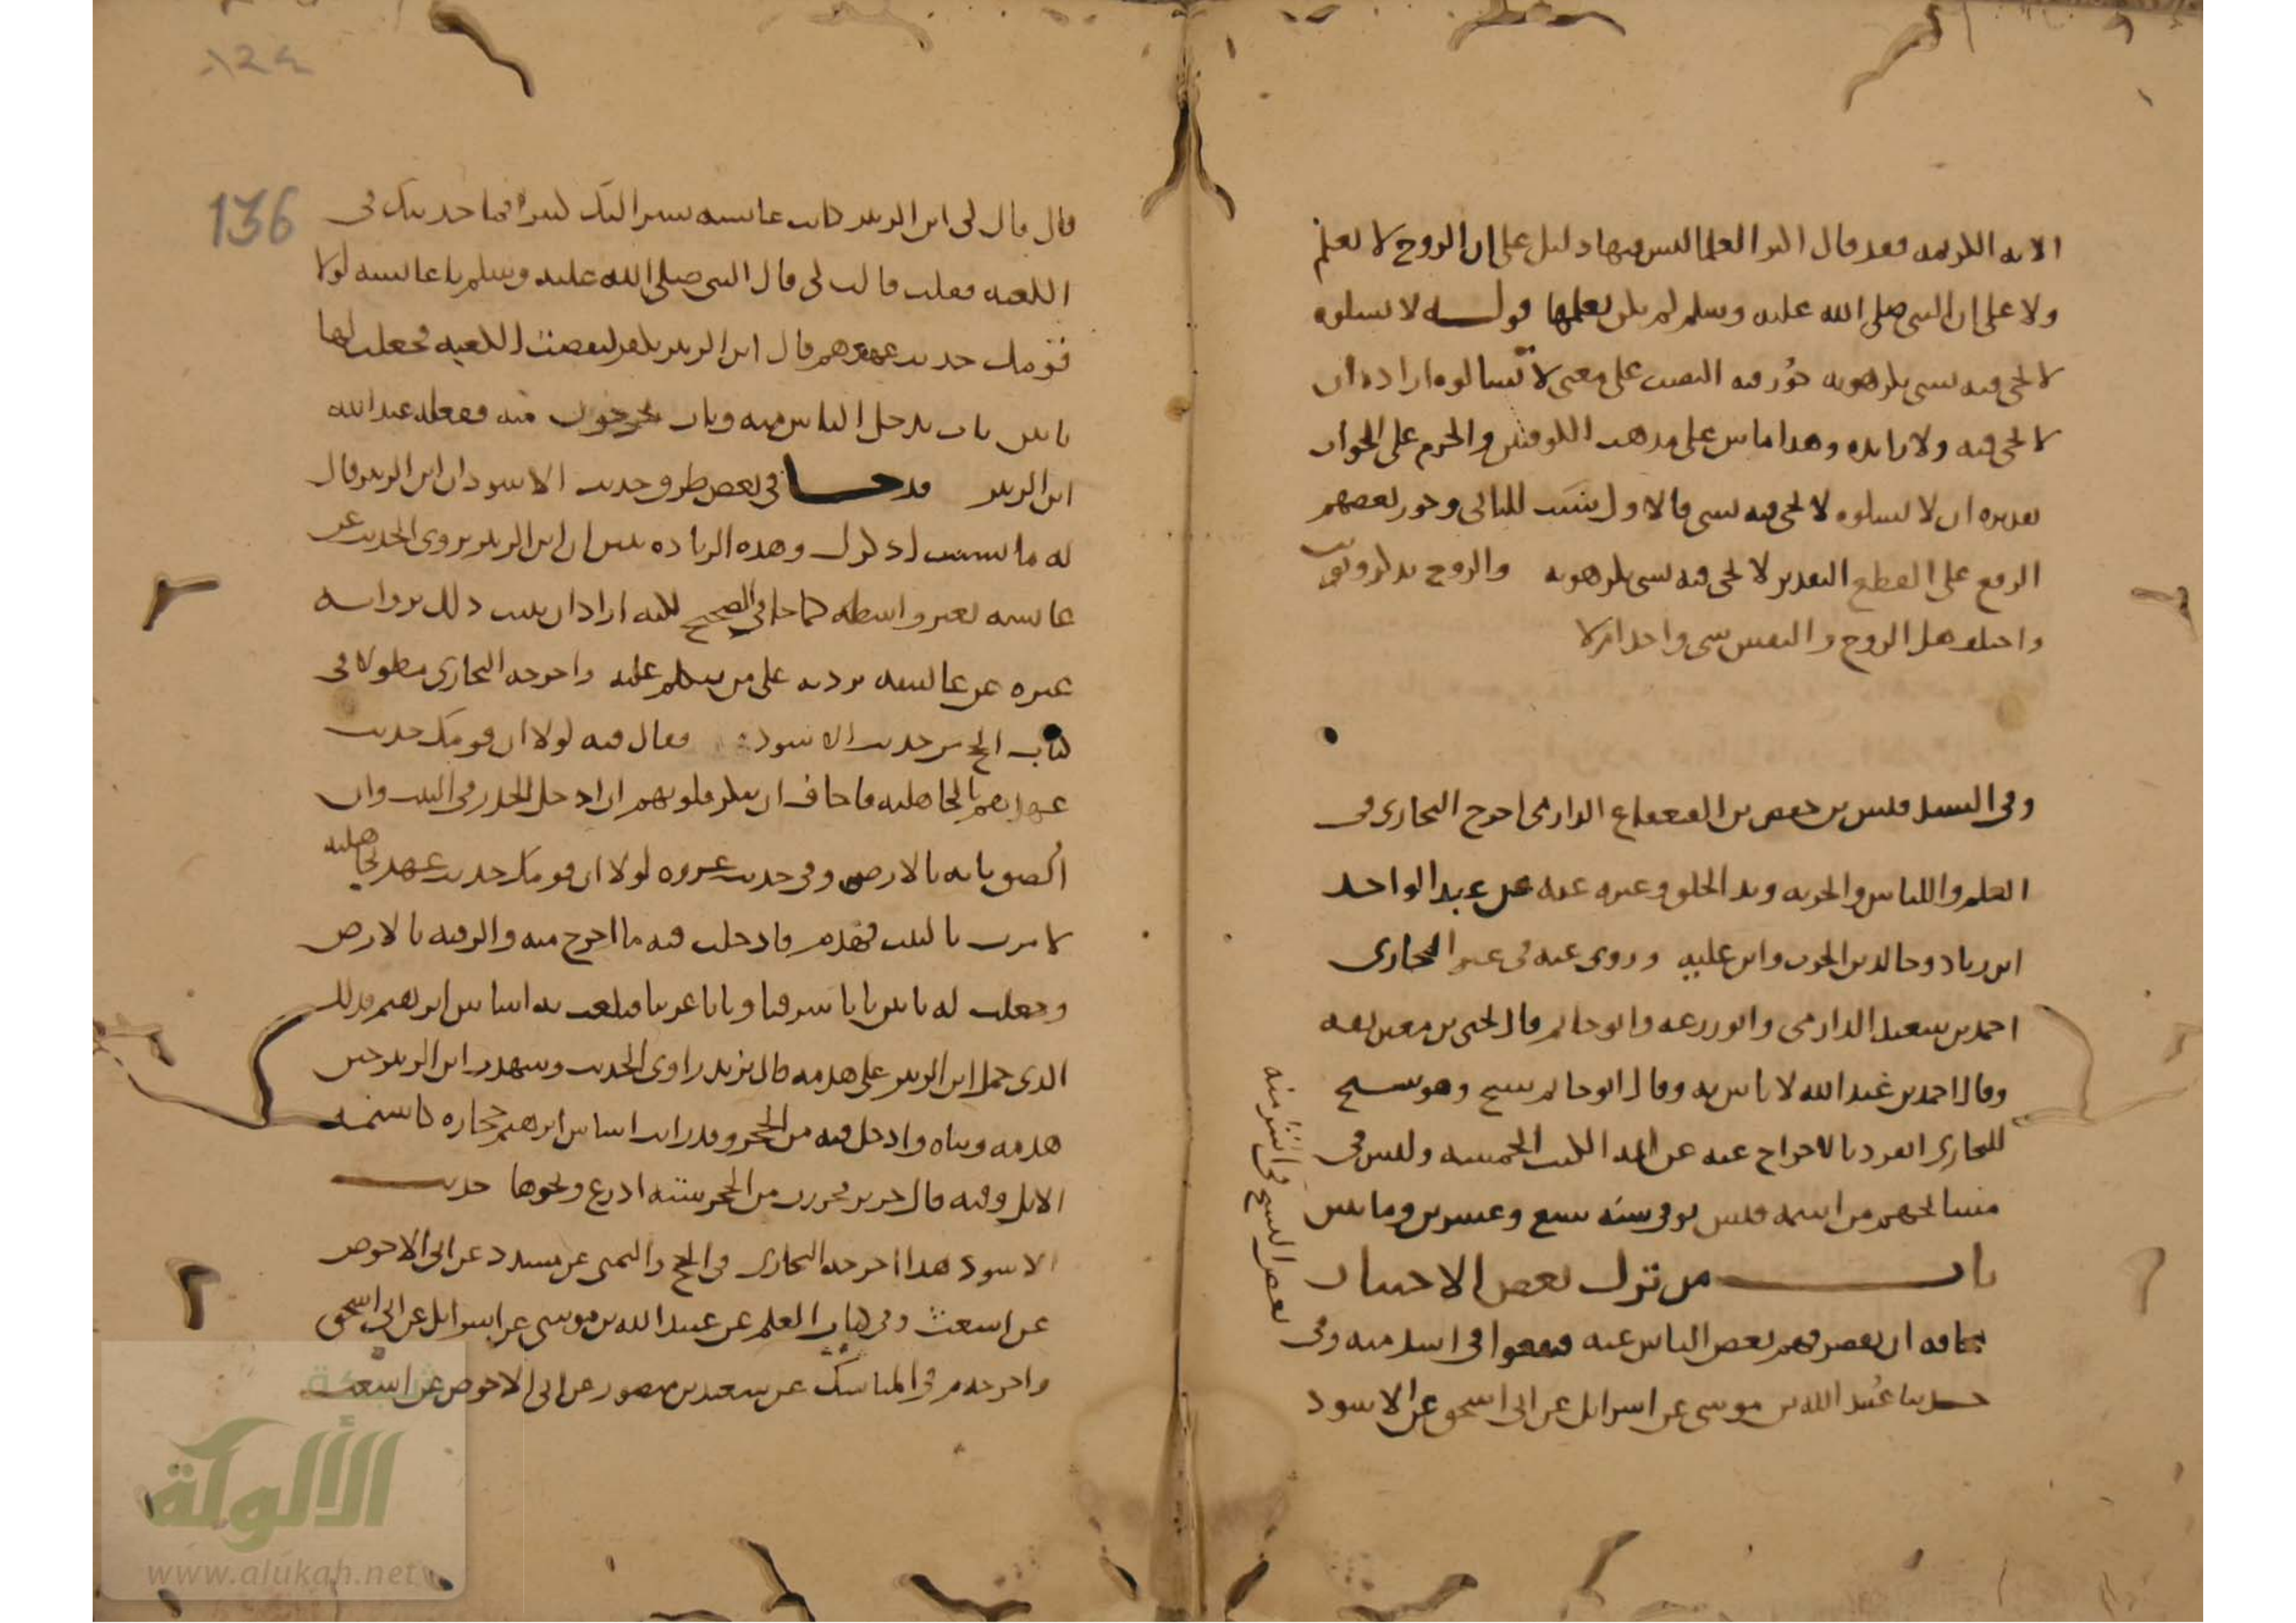 الآية الكريمة فقد قال اكثر العلما ليس فيها دليل على ان الروح لا تعلم
ولا على ان النبي صلى الله عليه وسلم لم يكن يعلمها قوله لا تسلوه
لا يجي فيه بشي تكرهونه جوز فيه النصب على معنى لا تسالوه ارادة ان
لا يجي فيه ولا زايدة وهذا ماش على مذهب الكوفيين والجزم على الجواب
تقديره ان لا تسلوه لا يجي فيه بشي فالاول سبب للثاني وجوز بعضهم
الرفع على القطع التقدير لا يجي فيه بشي تكرهونه والروح يذكر ويونث
واختلف هل الروح والنفس شي واحد ام لا
وفي السند قيس بن حفص بن القعقاع الدارمي اخرج البخاري في
العلم واللباس والجزية وبد الخلق وغيره عنه عن عبد الواحد
ابن زياد وخالد بن الحرث وابن علية وروى عنه في غير البخاري
احمد بن سعيد الدارمي وابو زرعة وابو حاتم قال يحيى بن معين ثقة
وقال احمد بن عبد الله لا باس به وقال ابو حاتم شيخ وهو شيخ
للبخاري انفرد بالاخراج عنه عن ايمة الكتب الخمسة وليس في
مشايخهم من اسمه قيس توفي سنة سبع وعشرين ومايتين
باب من ترك بعض الاختيار
مخافة ان يقصر فهم بعض الناس عنه فيقعوا في اشد منه وفي
بعض النسخ في اشر منه
حدثنا عبيد الله بن موسى عن اسرائل عن ابي اسحق عن الاسود
136
قال قال لي ابن الزبير كانت عائشة تسر اليك كثيرا فما حدثتك في
الكعبة فقلت قالت لي قال النبي صلى الله عليه وسلم يا عائشة لولا
قومك حديث عهدهم قال ابن الزبير بكفر لنقضت الكعبة فجعلت لها
بابين باب يدخل الناس منه وباب يخرجون منه ففعله عبد الله
ابن الزبير قد جا في بعض طرق حديث الاسود ان ابن الزبير قال
له ما نسيت اذكرك وهذه الزيادة تبين ان ابن الزبير يروى الحديث عن
عائشة بغير واسطة كما جا في الصحيح لكنه اراد ان يثبت ذلك برواية
غيره عن عائشة يرد به على من ينكر عليه واخرجه البخاري مطولا في
كتاب الحج من حديث الاسود فقال فيه لولا ان قومك حديث
عهدهم بالجاهلية فاخاف ان تنكر قلوبهم ان ادخل الجدر في البيت وان
الصق بابه بالارض وفي حديث عروة لولا ان قومك حديث عهد بجاهلية
لامرت بالبيت فهدم فادخلت فيه ما اخرج منه والزقته بالارض
وجعلت له بابين بابا شرقيا وبابا غربيا فبلغت به اساس ابرهيم فذلك
الذي حمل ابن الزبير على هدمه قال يزيد راوى الحديث وشهدت ابن الزبير حين
هدمه وبناه وادخل فيه من الحجر وقد رايت اساس ابرهيم حجارة كاسنمة
الابل وفيه قال جرير فحزرت من الحجر ستة اذرع ونحوها حديث
الاسود هذا اخرجه البخاري في الحج والتمني عن مسدد عن ابي الاحوص
عن اشعث وفي كتاب العلم عن عبيد الله بن موسى عن اسرائل عن ابي اسحق
واخرجه م في المناسك عن سعيد بن منصور عن ابي الاحوص عن اشعث
شبكة
الألوكة
www.alukah.net